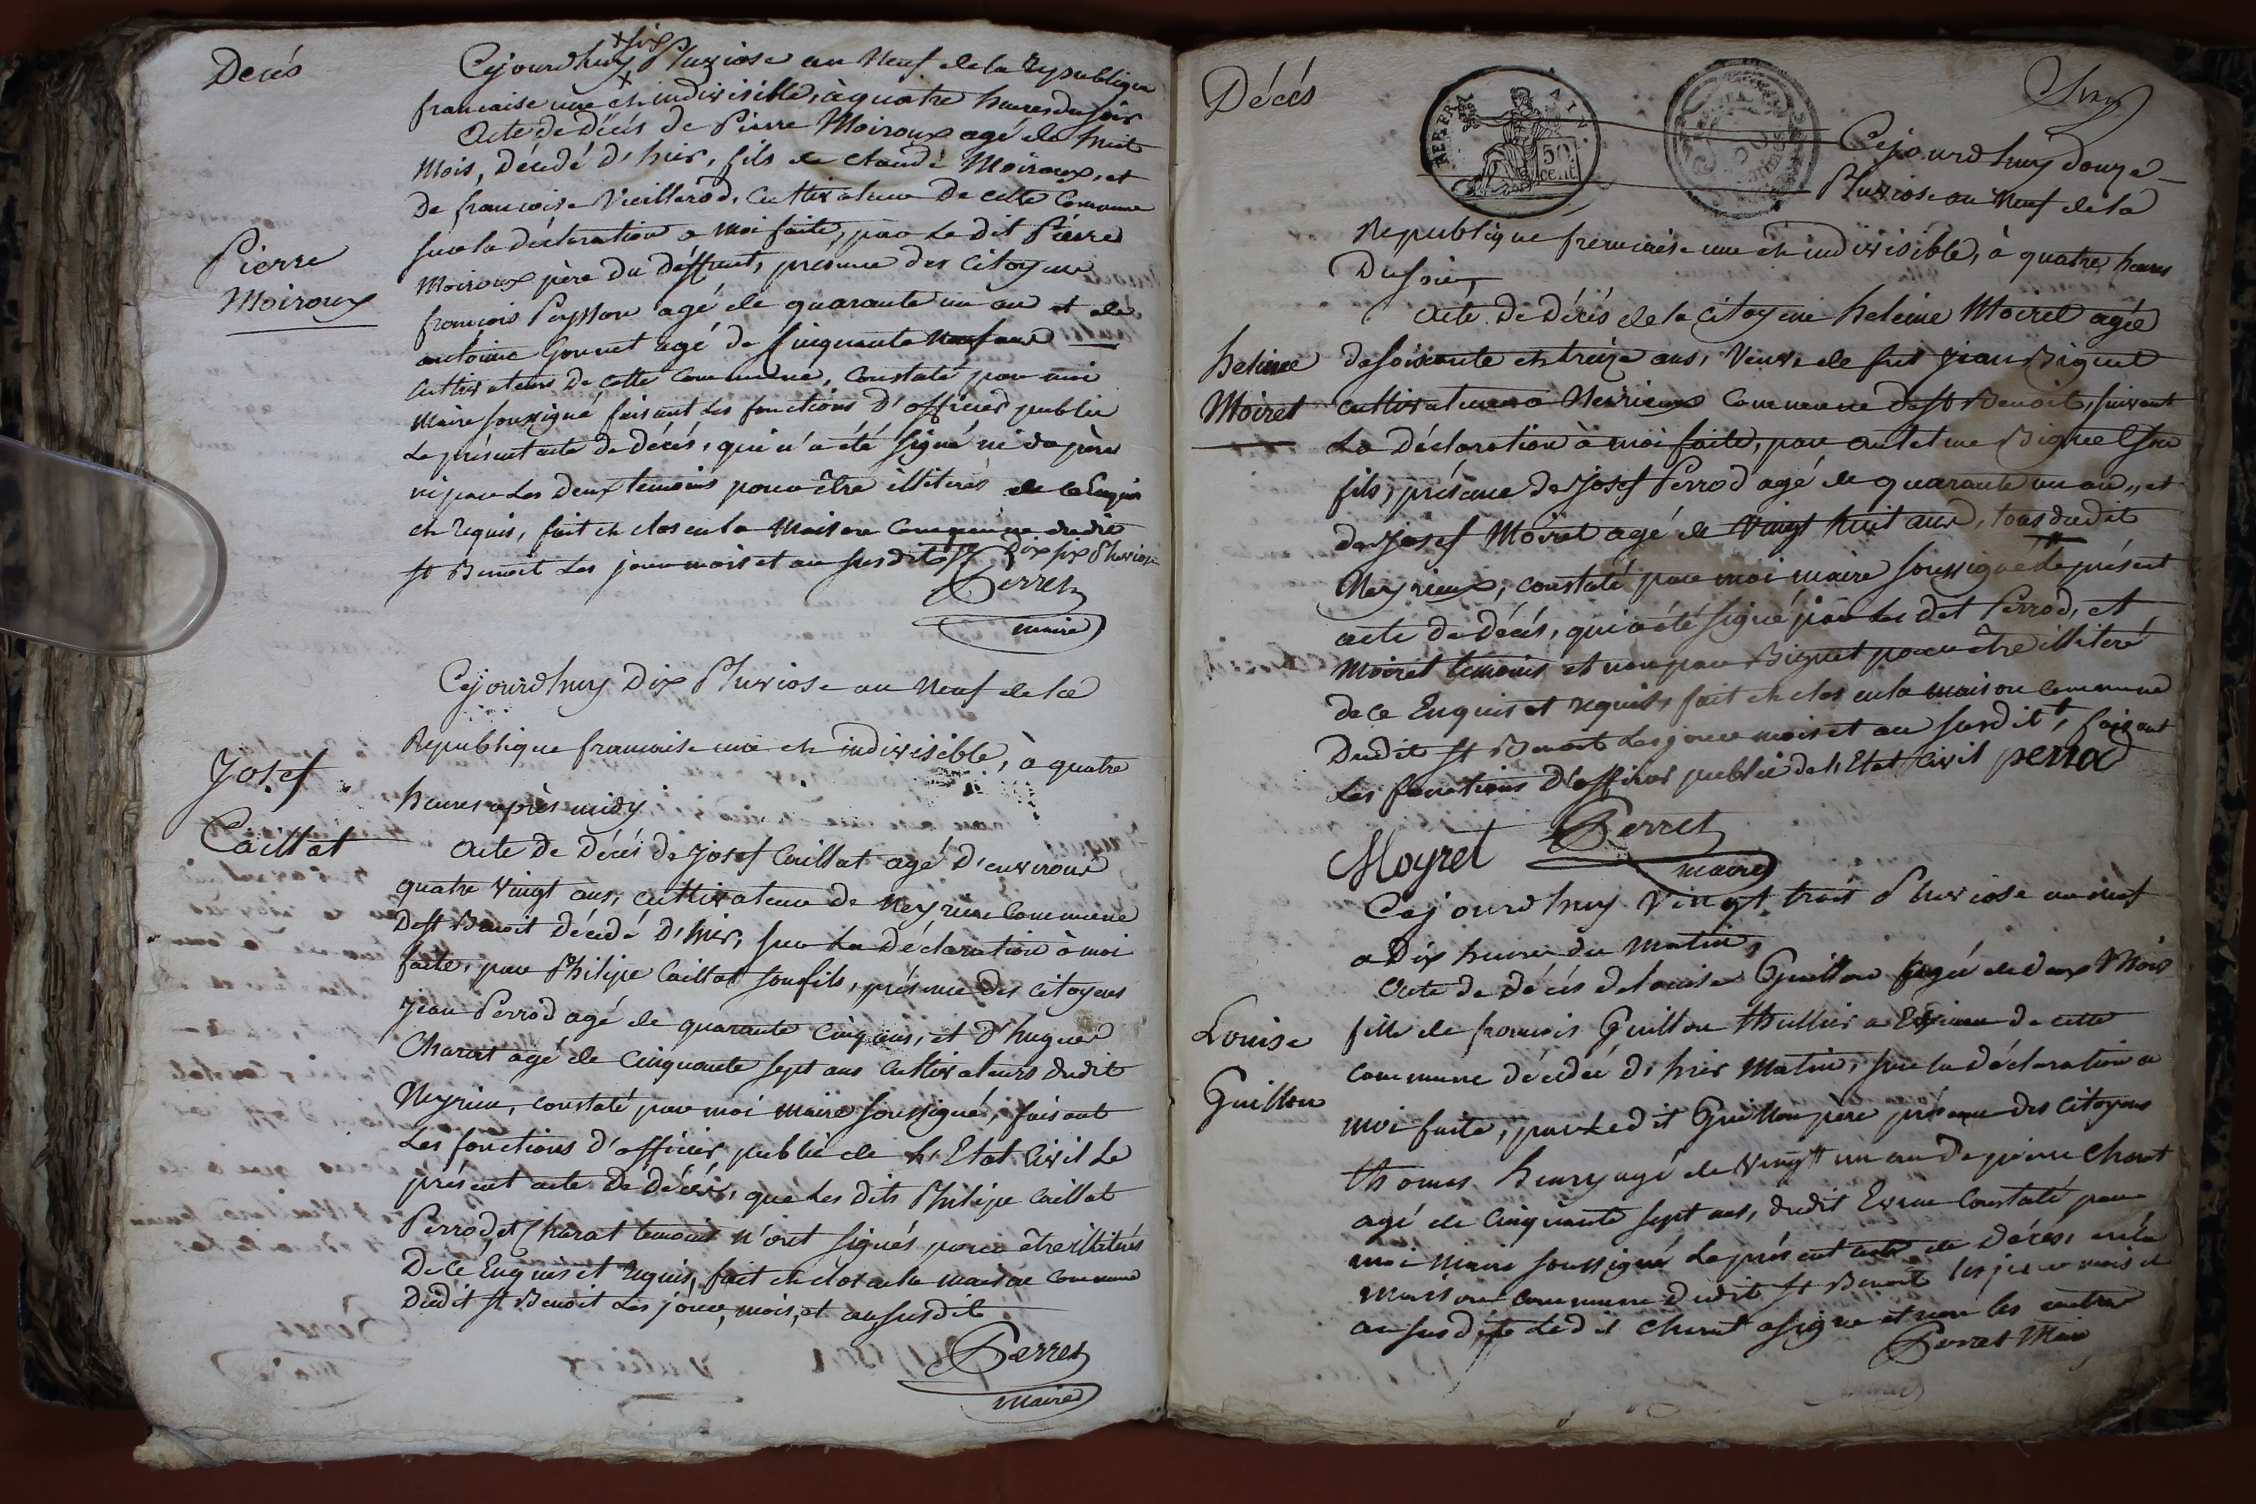 Decés
Cejourdhuy six Pluviose an Neuf de la Republique
francaise une et indivisible, à quatre heures du soir
Acte de Décés de Pierre Moiroux agé de huit
Mois, Décédé D'hier, fils de Claude Moiroux, et
De francoise Vieillerod, Cultivateur De cette Commune
sur la déclaration a Moi faite, par Le dit Pierre
Moiroux père Du deffunt, presence des Citoyens
francois Peysson agé de quarante un an et de
antoine Gonnet agé de Cinquante Neuf ans
Cultivateurs De cette Commune, Constaté par moi
Maire soussigné faisant Les fonctions D'officier public
Le présent acte De décés, qui n'a été signé ni du père
ni par Les Deux temoins pour être illiterés de ce Enquis
et Requis, fait et clos en la Maison Commune dudit
st Benoit Les jour mois et an susdits Dix six Pluviose
Perret
maire
Pierre
Moiroux
Cejourdhuy Dix Pluviose an Neuf de la
Republique francaise une et indivisible, à quatre
heures après midy
Josef
Caillat
Acte de Décés de Josef Caillat agé D'environ
quatre Vingt ans, cultivateur de Neyrieu Commune
De st Benoit Décédé D'hier, sur La Déclaration à moi
faite, par Philipe Caillat son fils, présence des Citoyens
Jean Perrod agé de quarante Cinq ans, et D'hugues
Charat agé de Cinquante sept ans Cultivateurs dudit
Neyrieu, constaté par moi Maire soussigné, faisant
Les fonctions d'officier public de L'Etat Civil Le
présent acte De décés, que Les dits Philipe Caillat
Perrod, et Charat temoins N'ont signés pour être illiterés
De Ce Enquis et Requis, fait et clos en la maison commune
Dudit st Benoit Les jour, mois, et an susdit
Perret
maire
Décés
REP. FRA
50
cent
Cejourdhuy douze
Pluviose an Neuf de la
Republique francaise une et indivisible, à quatre heures
Du soir,
Acte De Décés de la Citoyenne heleine Moiret agée
heleine
Moiret
de soixante et treize ans, Veuve de fut Jean Biguet
cultivateur a Neirieux Commune de st Benoit, suivant
La Déclaration à moi faite, par antelme Biguet son
fils, présence de Josef Perrod agé de quarante un an, et
de Josef Moiret agé de Vingt huit ans, tous dudit
Neyrieux, constaté par moi maire soussigné Le présent
acte De Décés, qui a été signé par Les dit Perrod, et
Moiret temoins et non par Biguet pour être illiteré
de ce Enquis et requis, fait et clos en la maison commune
Dudit st Benoit Les jour mois et an susdit, faisant
Les fonctions D'officier public de l'Etat Civil perrod
Moyret
Perret
maire
Cejourdhuy Vingt trois Pluviose an neuf
a Dix heures du matin,
Acte de Décés de Louise Guillon agée de deux Mois
Louise
Guillon
fille de francois Guillon thuillier a Evieu de cette
commune décédée D'hier Matin, sur la déclaration a
moi faite, par Ledit Guillon père présence des Citoyens
thomas henry agé de Vingt un an De pierre Charat
agé de Cinquante sept ans, dudit Evieu Constaté par
moi Maire soussigné Le présent acte de Décés, en la
Maison commune Dudit st Benoit les jour mois et
an susdits Ledit Charat a signé et non les autres
Perret Maire